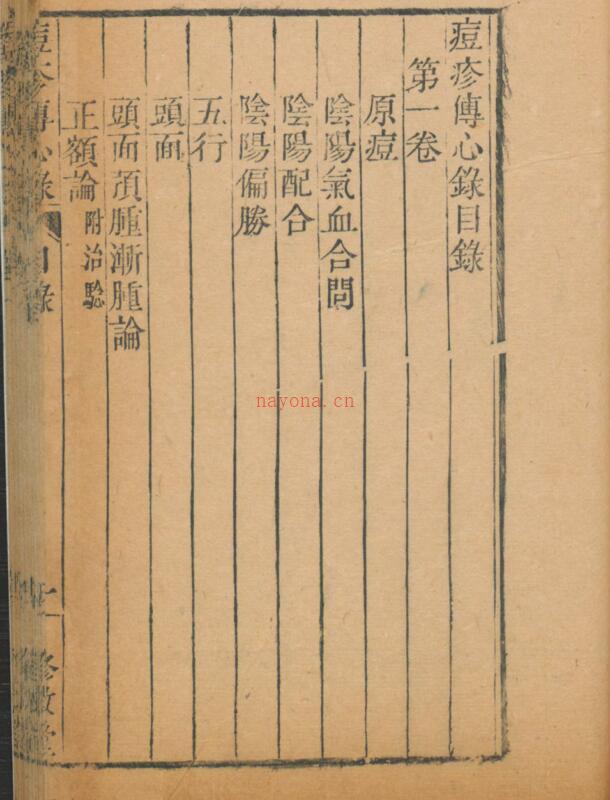 痘疹傳心錄目錄
第一卷
原痘
陰陽氣血合問
陰陽配合
陰陽偏勝
五行
頭面
頭面頂腫漸腫論
正額論 附治騐
痘疹傳心錄 目錄
修敬堂
nayona.cn